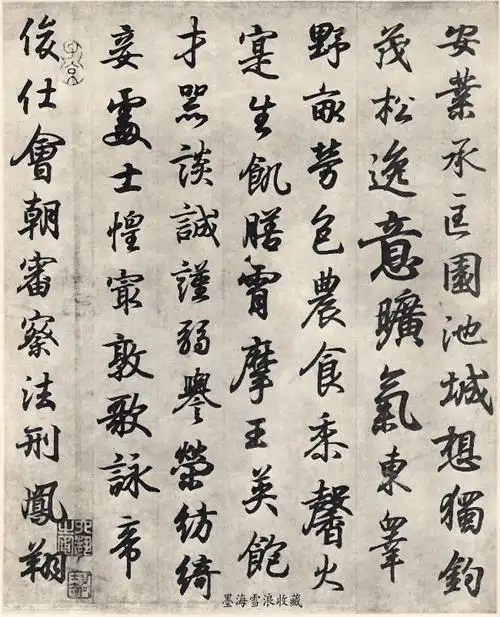 安業承匡園池城想獨鈞
茂松逸意曠氣東
野畝芳色農食黍馨火
寔生飢膳摩王英飽
才器談誠謹弱譽榮紡綺
妾處士惶敦歌詠帝
俊仕會朝審察法刑鳳翔
墨海雪浪收藏